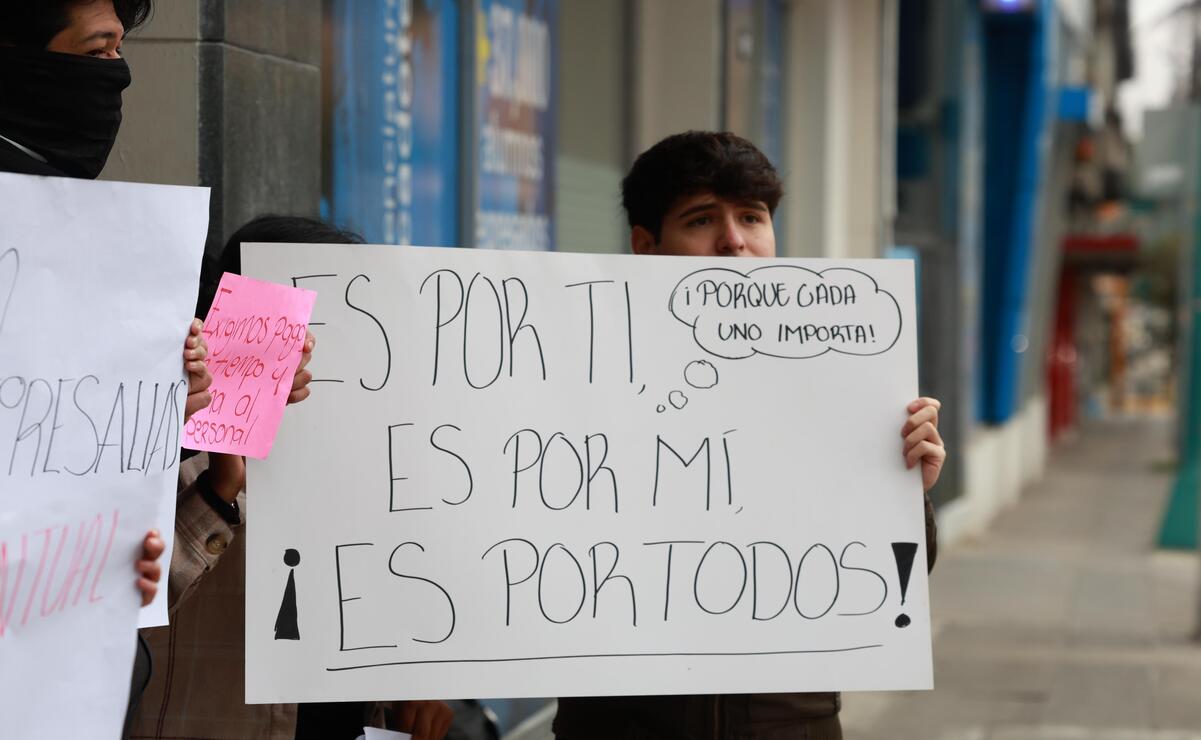 ES POR TI,
¡PORQUE CADA
UNO IMPORTA!
ES POR MÍ,
¡ES POR TODOS!
Exigimos pago
tiempo y
al
personal
PRESALIAS